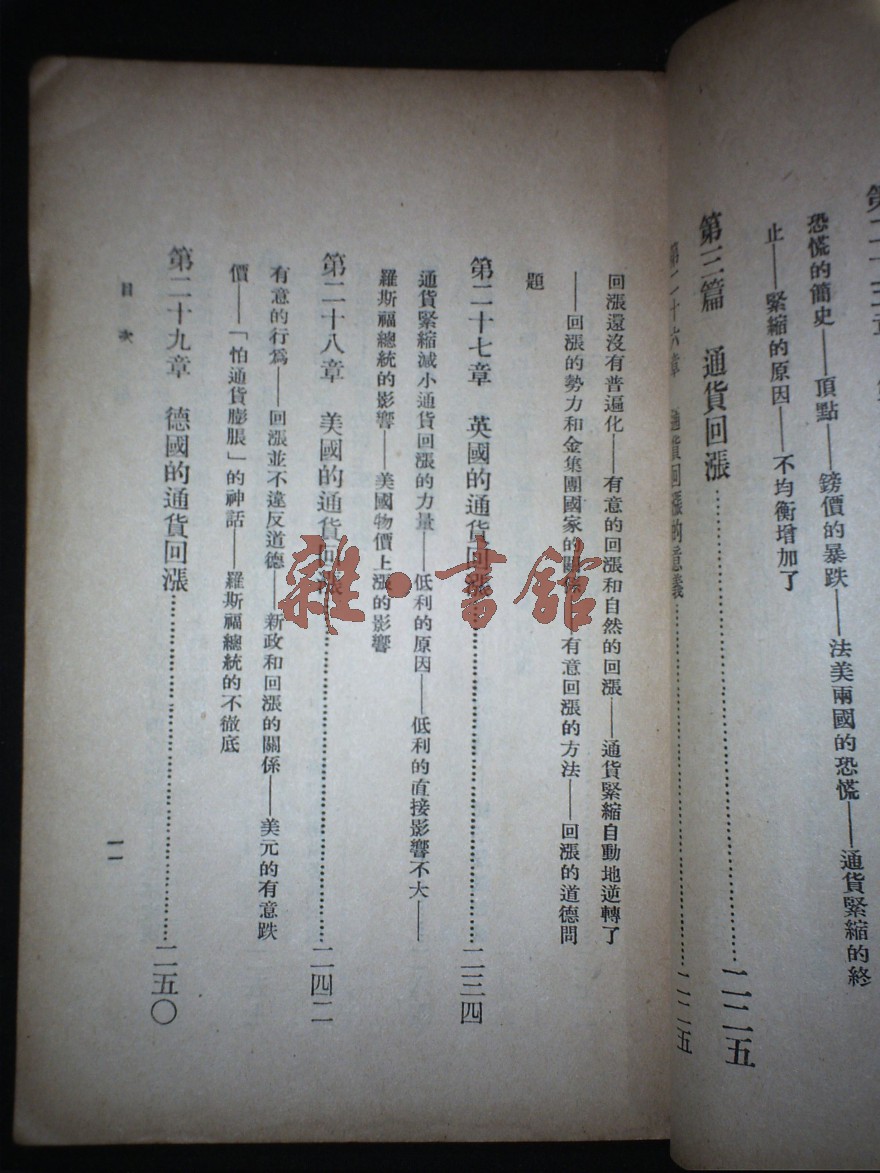 恐慌的簡史——頂點——鎊價的暴跌——法美兩國的恐慌——通貨緊縮的終
止——緊縮的原因——不均衡增加了
第三篇 通貨回漲……二二五
第二十六章 通貨回漲的意義……二二五
回漲還沒有普遍化——有意的回漲和自然的回漲——通貨緊縮自動地逆轉了
——回漲的勢力和金集團國家的關係——有意回漲的方法——回漲的道德問
題
第二十七章 英國的通貨回漲……二三四
通貨緊縮減小通貨回漲的力量——低利的原因——低利的直接影響不大——
羅斯福總統的影響——美國物價上漲的影響
第二十八章 美國的通貨回漲……二四二
有意的行爲——回漲並不違反道德——新政和回漲的關係——美元的有意跌
價——「怕通貨膨脹」的神話——羅斯福總統的不徹底
第二十九章 德國的通貨回漲……二五〇
目次
一一
雜·書館